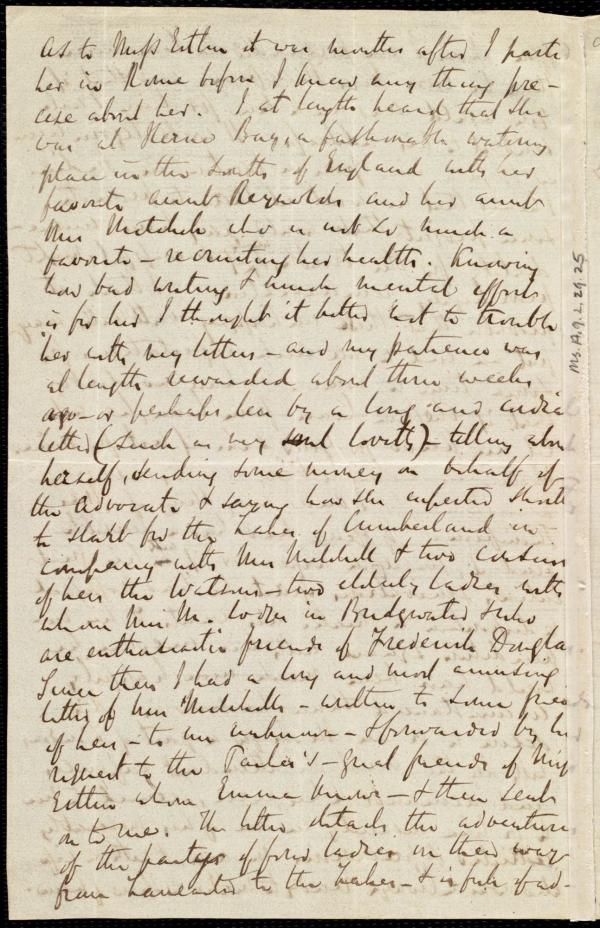 As to Miss Estlin it was months after I parte
her in Rome before I knew any thing pre-
cise about her. I at length heard that she
was at Herne Bay, a fashionable watering
place in the South of England with her
favorite aunt Reynolds and her aunt
Mrs Mitchell who is not so much a
favorite - recruiting her health. Knowing
how bad writing & much mental effort
is for her I thought it better not to trouble
her with my letters - and my patience was
at length rewarded about three weeks
ago - or perhaps less by a long and cordia
letter (such as my soul loveth) - telling abou
herself, sending some money on behalf of
the Advocate & saying how she expected shortl
to start for the Lakes of Cumberland in
company with Mrs Mitchell & two cousins
of hers the Watsons - two elderly ladies with
whom Mrs M. lodges in Bridgwater & who
are enthusiastic friends of Frederick Dougla
Since then I had a long and most amusing
letter of Mrs Mitchell's - written to some frien
of hers - to me unknown - & forwarded by he
request to the - great friends of Miss
Estlin whom Emma knows - & then sent
on to me. The letter details the adventure
of the party of four ladies on their way
from Lancaster to the Lakes - & is full of ad-
Ms. A.9.2.29.25